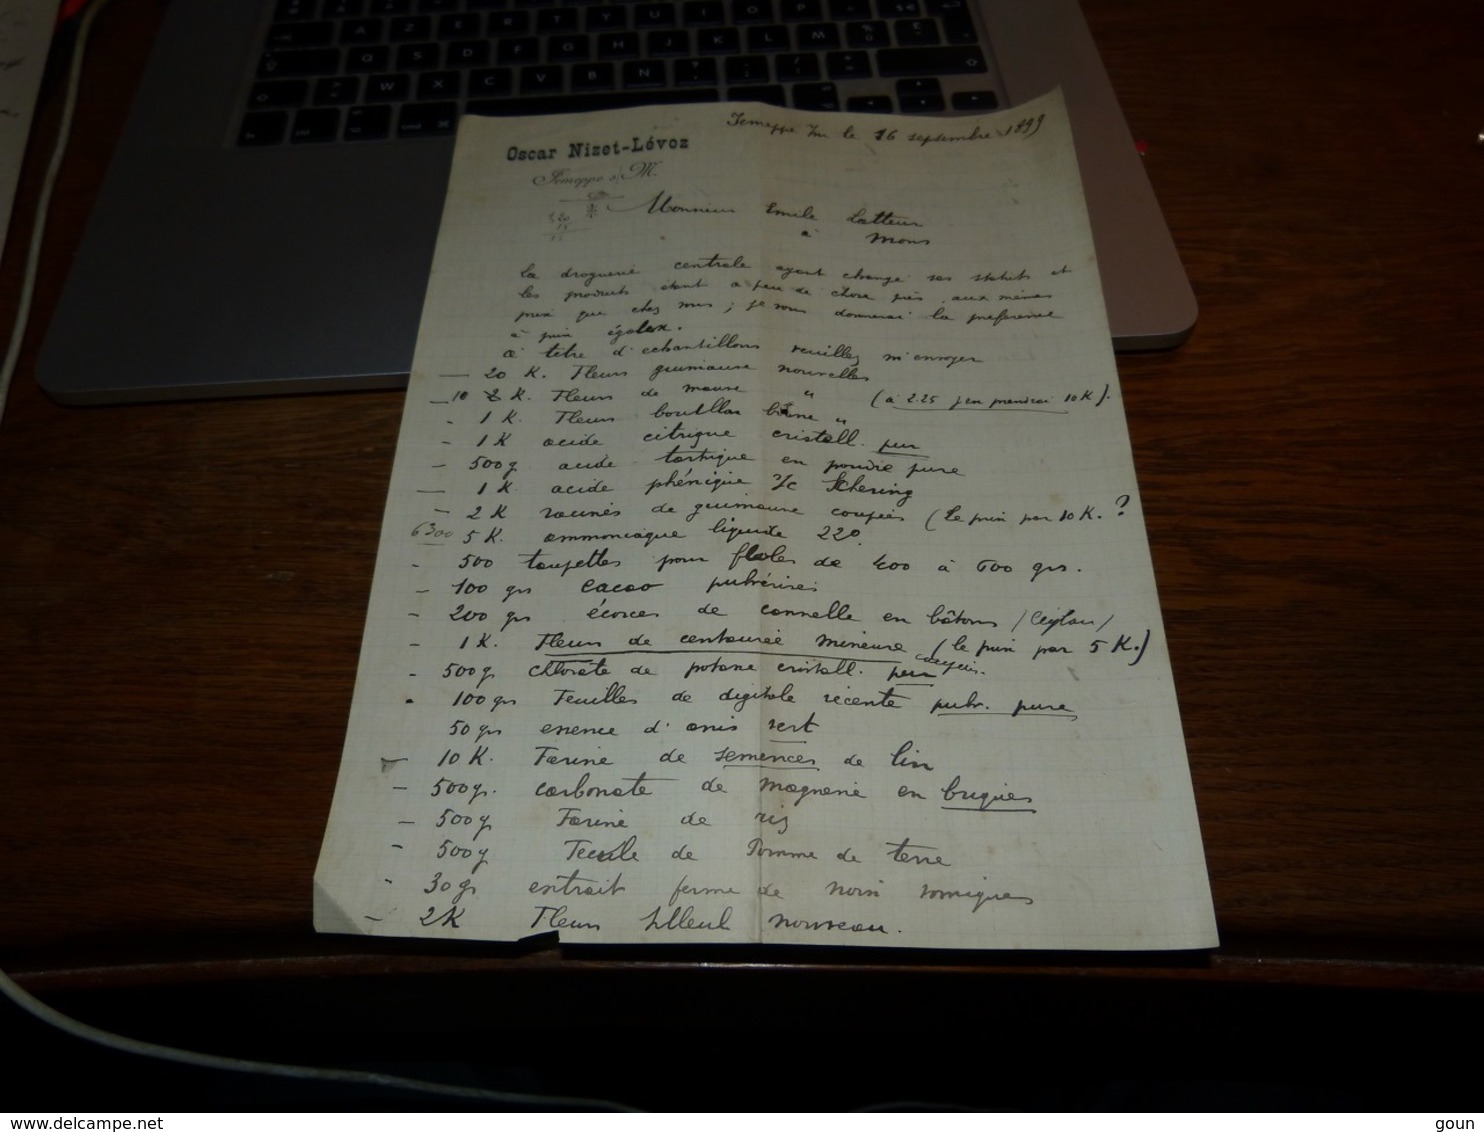 Jemeppe s/m le 16 septembre 1899
Oscar Nizet-Lévoz
Jemeppe s/M.
Monsieur Emile Latteur
à Mons
La droguerie centrale ayant changé ses statuts et
les produits étant à peu de chose près aux mêmes
prix que chez vous ; je vous donnerai la préférence
à prix égaux.
à titre d'échantillons veuillez m'envoyer
— 20 K. Fleurs guimauve nouvelles
— 10 K. Fleurs de mauve " (à 2.25 j'en prendrai 10 K).
- 1 K. Fleurs bouillon blanc "
- 1 K acide citrique cristall. pur
- 500 g acide tartrique en poudre pure
— 1 K. acide phénique Schering
- 2 K racines de guimauve coupées (le prix par 10 K. ?
6300 5 K. ammoniaque liquide 22°
- 500 toupettes pour fioles de 400 à 600 grs.
- 100 grs cacao pulvérisé
- 200 grs écorces de cannelle en bâtons / Ceylan /
- 1 K. Fleurs de centaurée mineure (le prix par 5 K.)
- 500 g chlorate de potasse cristall. pur
- 100 grs Feuilles de digitale récente pulv. pure
50 grs essence d'anis vert
- 10 K. Farine de semences de lin
- 500 gr. carbonate de magnésie en briques
- 500 g Farine de riz
- 500 g Fécule de Pomme de terre
- 30 gr extrait ferme de noix vomiques
- 2 K Fleurs tilleul nouveau.
www.delcampe.net
goun